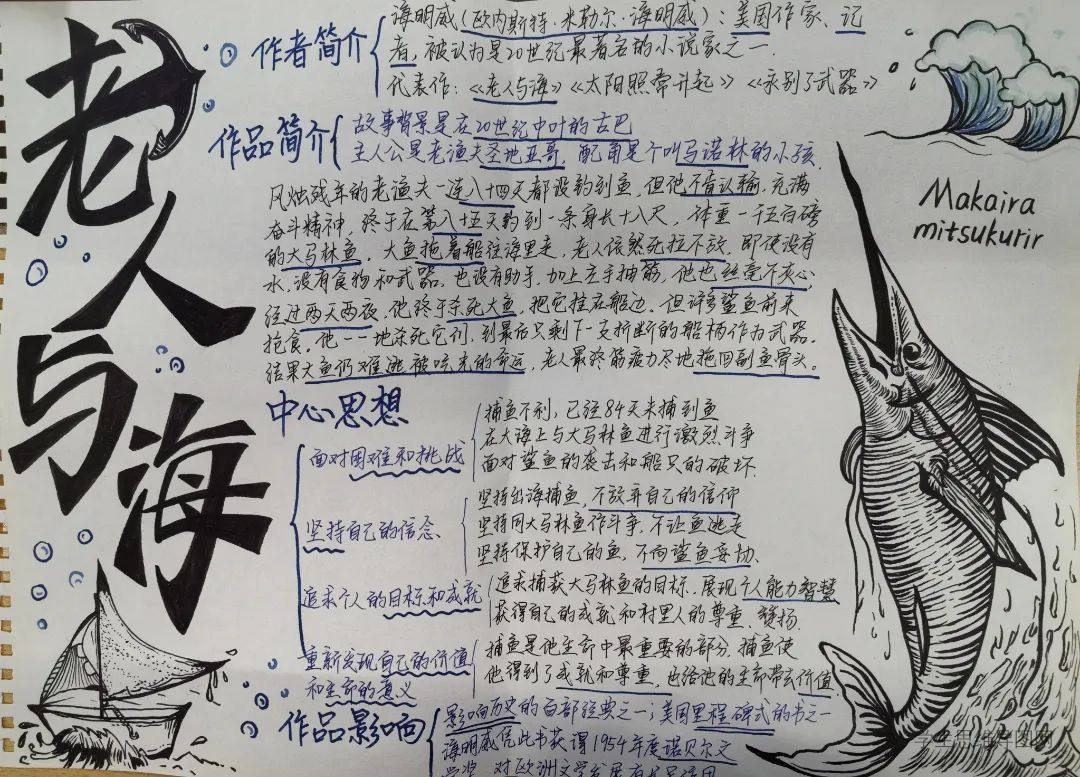 老人与海
作者简介
海明威(欧内斯特·米勒尔·海明威):美国作家、记
者,被认为是20世纪最著名的小说家之一.
代表作:《老人与海》《太阳照常升起》《永别了武器》
作品简介
故事背景是在20世纪中叶的古巴
主人公是老渔夫圣地亚哥,配角是个叫马诺林的小孩.
风烛残年的老渔夫一连八十四天都没钓到鱼,但他不肯认输,充满
奋斗精神,终于在第八十五天钓到一条身长十八尺,体重一千五百磅
的大马林鱼。大鱼拖着船往海里走,老人依然死拉不放,即使没有
水,没有食物和武器,也没有助手,加上左手抽筋,他也丝毫不灰心
经过两天两夜,他终于杀死大鱼,把它拴在船边.但许多鲨鱼前来
抢食.他一一地杀死它们,到最后只剩下一支折断的船柄作为武器.
结果大鱼仍难逃被吃光的命运,老人最终筋疲力尽地拖回副鱼骨头。
Makaira
mitsukurir
中心思想
面对困难和挑战
捕鱼不利,已经84天未捕到鱼
在大海上与大马林鱼进行激烈斗争
面对鲨鱼的袭击和船只的破坏.
坚持自己的信念
坚持出海捕鱼,不放弃自己的信仰
坚持同大马林鱼作斗争,不让鱼逃走
坚持保护自己的鱼,不向鲨鱼妥协.
追求个人的目标和成就
追求捕获大马林鱼的目标,展现个人能力智慧
获得自己的成就和村里人的尊重、赞扬.
重新发现自己的价值
和生命的意义
捕鱼是他生命中最重要的部分,捕鱼使
他得到了成就和尊重,也给他的生命带去价值
作品影响
影响历史的百部经典之一;美国里程碑式的书之一
海明威凭此书获得1954年度诺贝尔文
学奖,对欧洲文学发展有长足作用